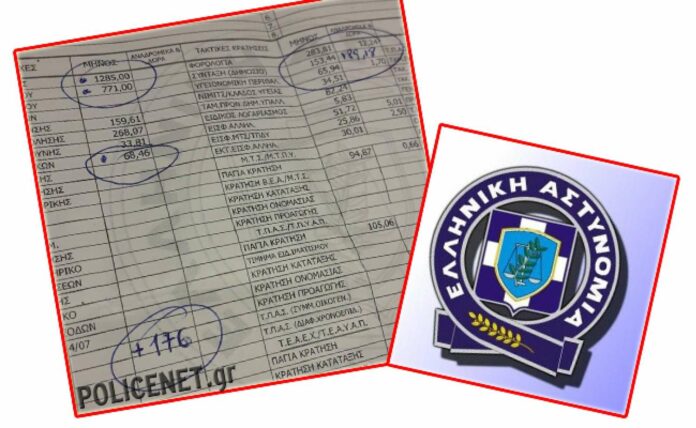 ΚΕΣ ΜΗΝΟΣ ΑΝΑΔΡΟΜΙΚΑ & ΔΩΡΑ ΤΑΚΤΙΚΕΣ ΚΡΑΤΗΣΕΙΣ ΜΗΝΟΥ ΑΝΑΔΡΟΜΙΚΑ & ΔΩΡΑ
1285,00 ΦΟΡΟΛΟΓΙΑ 283,81
771,00 ΣΥΝΤΑΞΗ (ΔΗΜΟΣΙΟ) 153,44 +89,18
ΥΓΕΙΟΝΟΜΙΚΗ ΠΕΡΙΘΑΛ. 65,94 1,70
159,61 ΝΙΜΙΤΣ/ΚΛΑΔΟΣ ΥΓΕΙΑΣ 34,51
268,97 ΤΑΜ.ΠΡΟΝ.ΔΗΜ.ΥΠΑΛΛ. 82,24
33,81 ΕΙΔΙΚΟΣ ΛΟΓΑΡΙΑΣΜΟΣ 5,83 5,01
68,46 ΕΙΣΦ.ΑΛΛΗΛ. 51,72 2,50
ΕΙΣΦ.ΜΤΣ/ΤΠΔΥ 25,86
ΕΚΤ.ΕΙΣΦ.ΑΛΛΗΛ. 30,01
Μ.Τ.Σ./Μ.Τ.Π.Υ. 94,87 0,66
ΠΑΓΙΑ ΚΡΑΤΗΣΗ
ΚΡΑΤΗΣΗ Β.Ε.Α./Μ.Τ.Σ.
ΚΡΑΤΗΣΗ ΚΑΤΑΤΑΞΗΣ
ΚΡΑΤΗΣΗ ΟΝΟΜΑΣΙΑΣ
ΚΡΑΤΗΣΗ ΠΡΟΑΓΩΓΗΣ
Τ.Π.Α.Σ./Τ.Π.Υ.Α.Π. 105,06
ΠΑΓΙΑ ΚΡΑΤΗΣΗ
ΤΙΜΗΜΑ ΕΙΔ.ΙΜΑΤΙΣΜΟΥ
ΚΡΑΤΗΣΗ ΚΑΤΑΤΑΞΗΣ
ΚΡΑΤΗΣΗ ΟΝΟΜΑΣΙΑΣ
ΚΡΑΤΗΣΗ ΠΡΟΑΓΩΓΗΣ
4/07 Τ.Π.Α.Σ. (ΣΥΜΝ.ΟΙΚΟΓΕΝ.)
Τ.Π.Α.Σ. (ΔΙΑΦ.ΧΡΟΝΟΕΠΙΔ.)
+176 Τ.Ε.Α.Ε.Χ/Τ.Ε.Α.Υ.Α.Π.
ΠΑΓΙΑ ΚΡΑΤΗΣΗ
ΚΡΑΤΗΣΗ ΚΑΤΑΤΑΞΗΣ
POLICENET.gr
ΕΛΛΗΝΙΚΗ ΑΣΤΥΝΟΜΙΑ